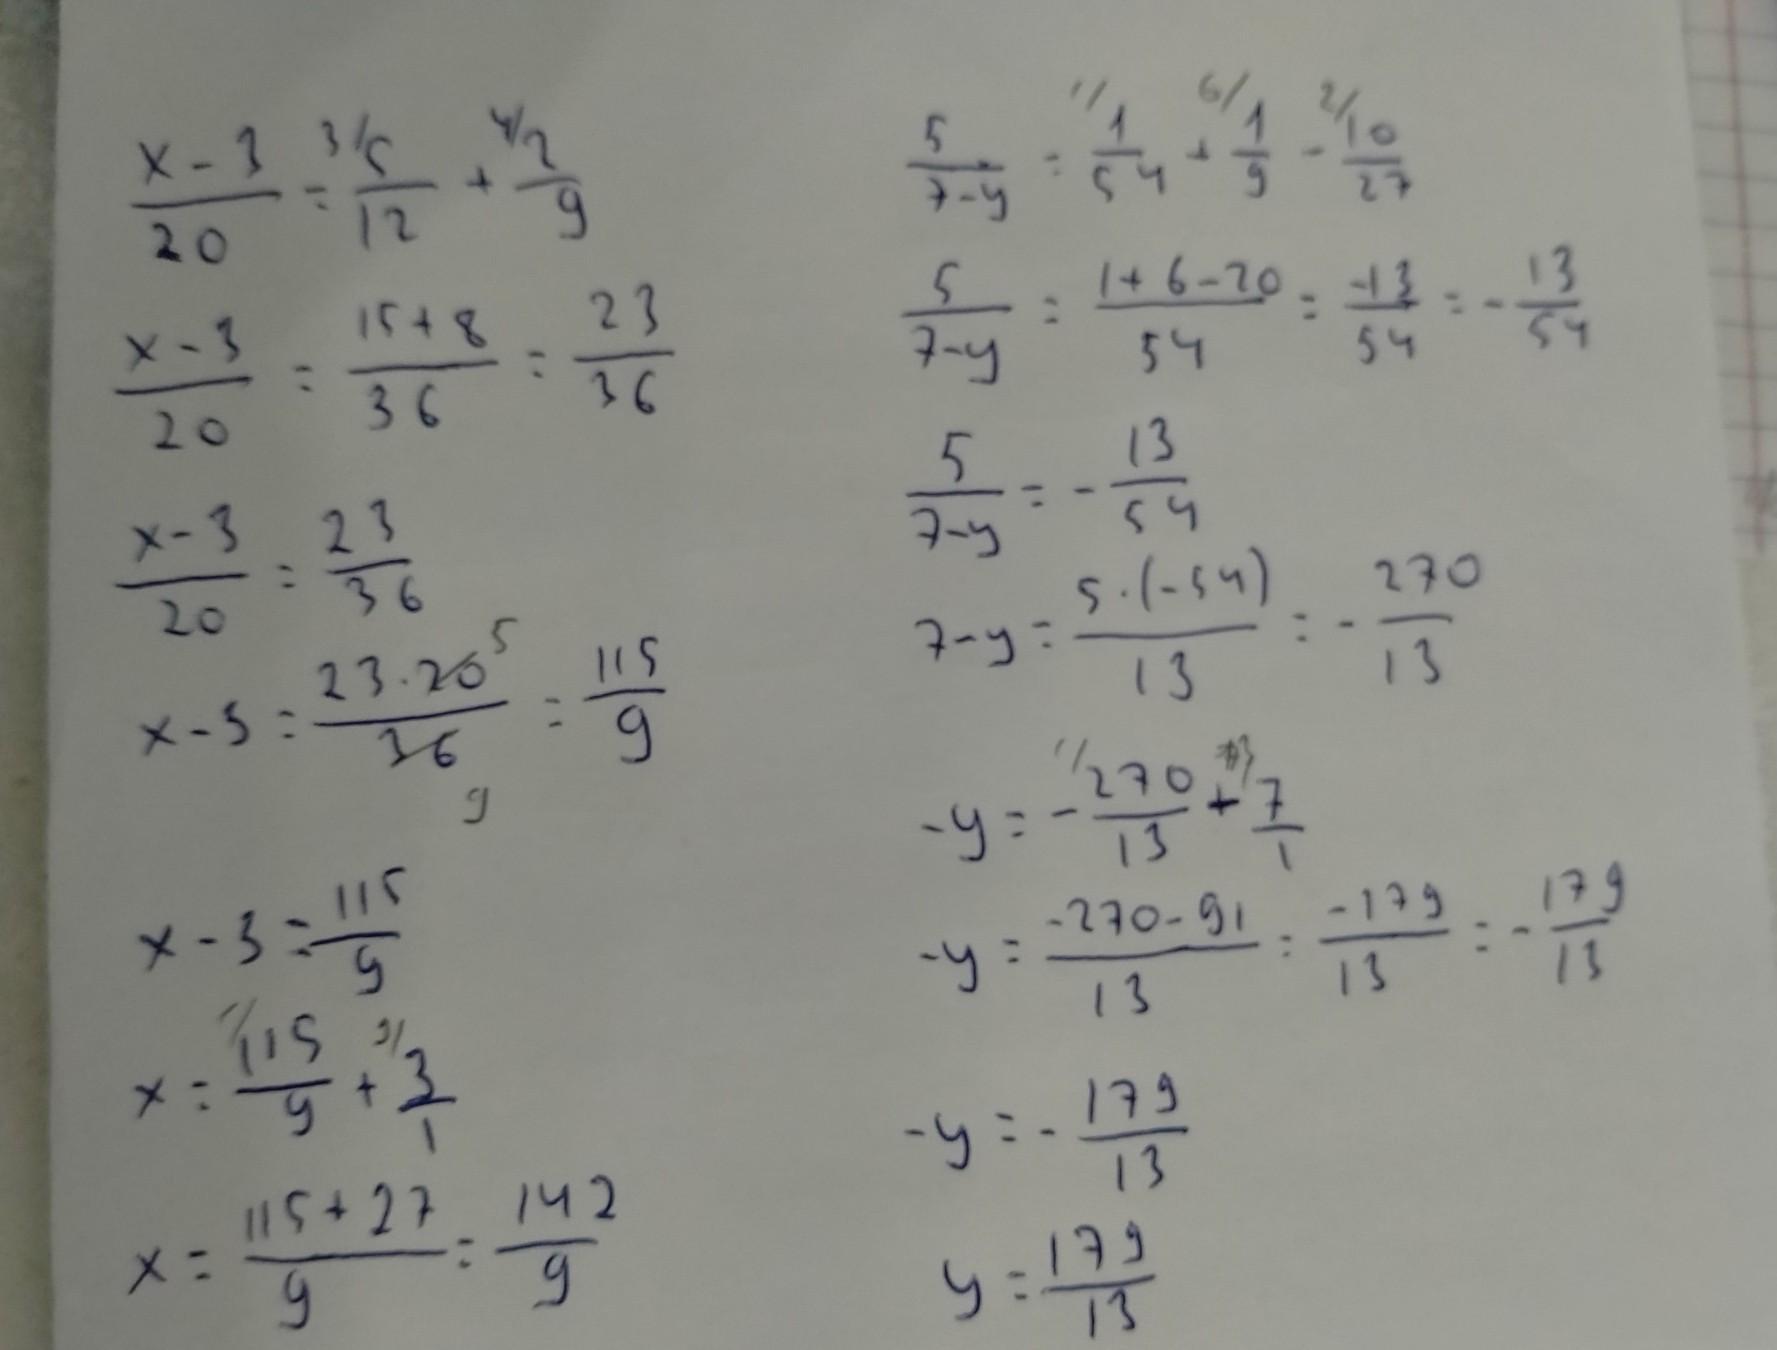 x-3/20 = 3/ 5/12 + 4/ 2/9
x-3/20 = 15+8/36 = 23/36
x-3/20 = 23/36
x-3 = 23·20 5/36 9 = 115/9
x-3 = 115/9
x = 1/ 115/9 + 9/ 3/1
x = 115+27/9 = 142/9
5/7-y = 1/ 1/54 + 6/ 1/9 - 2/ 10/27
5/7-y = 1+6-20/54 = -13/54 = -13/54
5/7-y = -13/54
7-y = 5·(-54)/13 = -270/13
-y = -1/ 270/13 + 13/ 7/1
-y = -270-91/13 = -179/13 = -179/13
-y = -179/13
y = 179/13